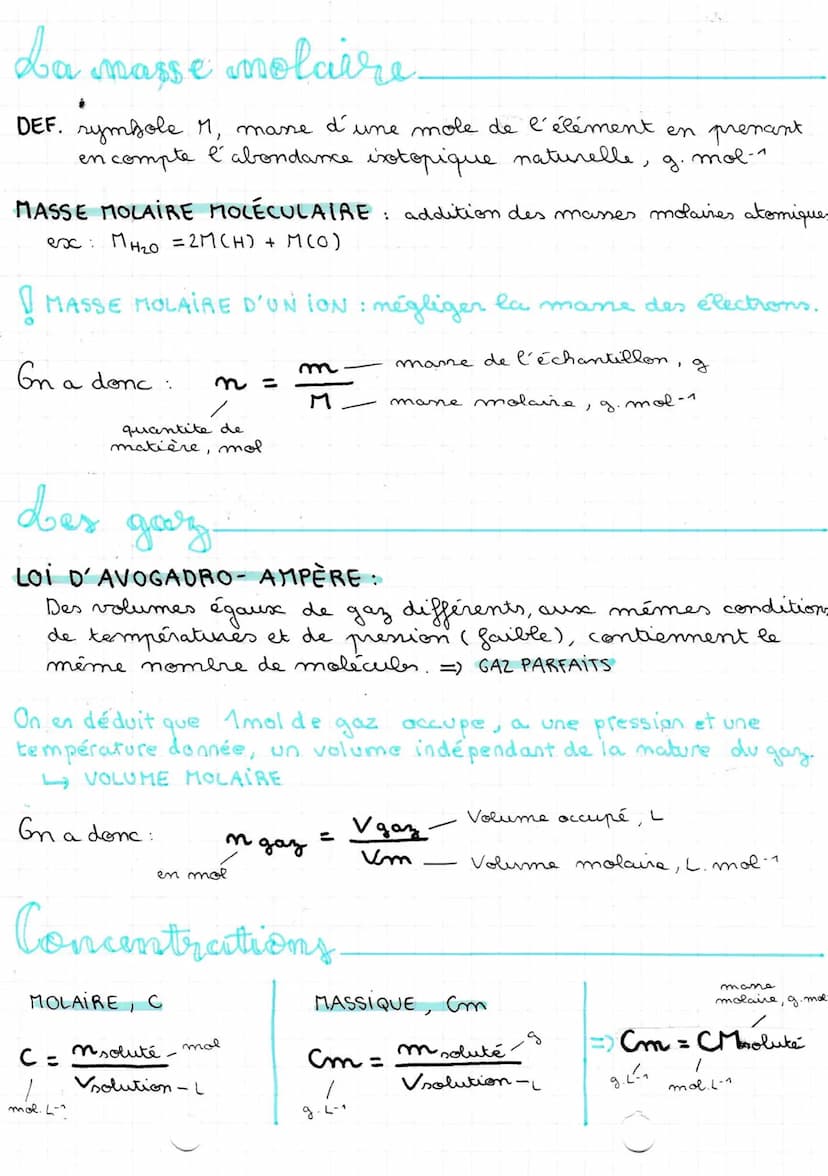 La masse molaire
DEF. symbole M, masse d'une mole de l'élément en prenant
en compte l'abondance isotopique naturelle, g.mol-1
MASSE MOLAIRE MOLÉCULAIRE : addition des masses molaires atomiques
ex : MH2O = 2M(H) + M(O)
! MASSE MOLAIRE D'UN ION : négliger la masse des électrons.
On a donc : n = m/M
masse de l'échantillon, g
masse molaire, g.mol-1
quantité de
matière, mol
Les gaz
LOI D'AVOGADRO-AMPÈRE :
Des volumes égaux de gaz différents, aux mêmes conditions
de températures et de pression (faible), contiennent le
même nombre de molécules. => GAZ PARFAITS
On en déduit que 1mol de gaz occupe, a une pression et une
température donnée, un volume indépendant de la nature du gaz.
↳ VOLUME MOLAIRE
On a donc : n gaz = Vgaz/Vm
Volume occupé, L
Volume molaire, L.mol-1
en mol
Concentrations
MOLAIRE, C
C = nsoluté/Vsolution
mol
L
mol.L-1
MASSIQUE, Cm
Cm = msoluté/Vsolution
g
L
g.L-1
masse
molaire, g.mol
=> Cm = CMsoluté
g.L-1
mol.L-1